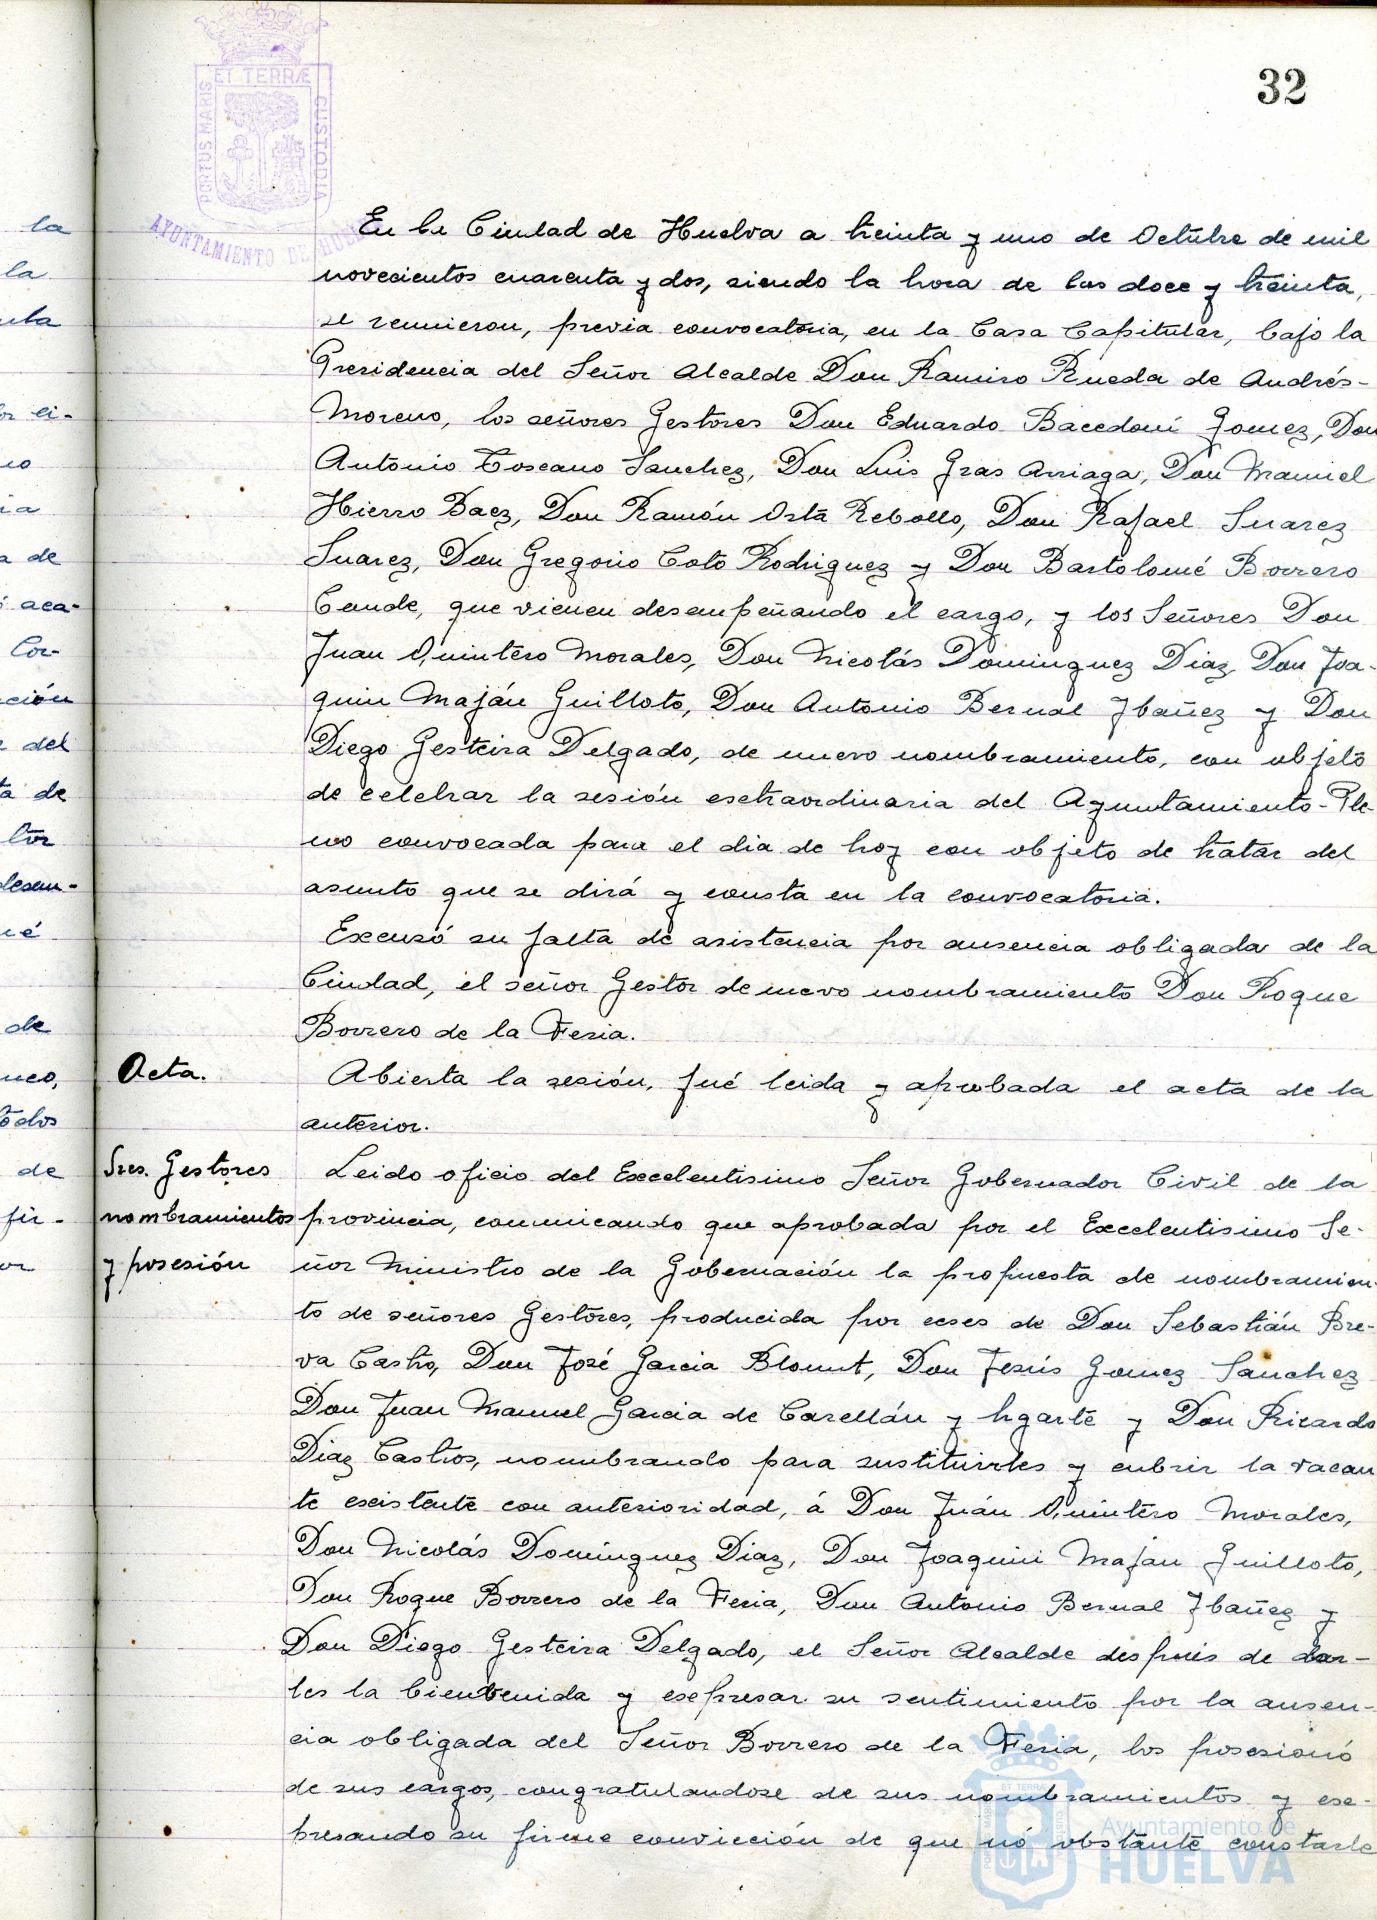 32
ET TERRÆ
PORTUS MARIS
CUSTODIA
AYUNTAMIENTO DE HUELVA
En la Ciudad de Huelva a treinta y uno de Octubre de mil
novecientos cuarenta y dos, siendo la hora de las doce y treinta,
se reunieron, previa convocatoria, en la Casa Capitular, bajo la
Presidencia del Señor Alcalde Don Ramiro Rueda de Andrés-
Moreno, los señores Gestores Don Eduardo Bacedoni Gomez, Don
Antonio Toscano Sanchez, Don Luis Gras Arriaga, Don Manuel
Hierro Baez, Don Ramón Orta Rebollo, Don Rafael Suarez
Suarez, Don Gregorio Coto Rodriguez y Don Bartolomé Borrero
Conde, que vienen desempeñando el cargo, y los Señores Don
Juan Quintero Morales, Don Nicolás Dominguez Diaz, Don Joa-
quin Maján Guilloto, Don Antonio Bernal Ybañez y Don
Diego Gesteira Delgado, de nuevo nombramiento, con objeto
de celebrar la sesión esctraordinaria del Ayuntamiento-Ple-
no convocada para el dia de hoy con objeto de tratar del
asunto que se dirá y consta en la convocatoria.
Excusó su falta de asistencia por ausencia obligada de la
Ciudad, el señor Gestor de nuevo nombramiento Don Roque
Borrero de la Feria.
Acta.
Abierta la sesión, fué leida y aprobada el acta de la
anterior.
Sres. Gestores
nombramientos
y posesión
Leido oficio del Excelentisimo Señor Gobernador Civil de la
provincia, comunicando que aprobada por el Excelentisimo Se-
ñor Ministro de la Gobernación la propuesta de nombramien-
to de señores Gestores, producida por ceses de Don Sebastián Bre-
va Castro, Don José Garcia Blount, Don Jesús Gomez Sanchez
Don Juan Manuel Garcia de Carellán y Ugarte y Don Ricardo
Diaz Castros, nombrando para sustituirles y cubrir la vacan
te escistente con anterioridad, á Don Juán Quintero Morales,
Don Nicolás Dominguez Diaz, Don Joaquin Maján Guilloto,
Don Roque Borrero de la Feria, Don Antonio Bernal Ybañez y
Don Diego Gesteira Delgado, el Señor Alcalde despues de dar-
les la bienvenida y escpresar su sentimiento por la ausen-
cia obligada del Señor Borrero de la Feria, los posesionó
de sus cargos, congratulandose de sus nombramientos y esc-
presando su firme convicción de que nó obstante constarle
Ayuntamiento de
HUELVA